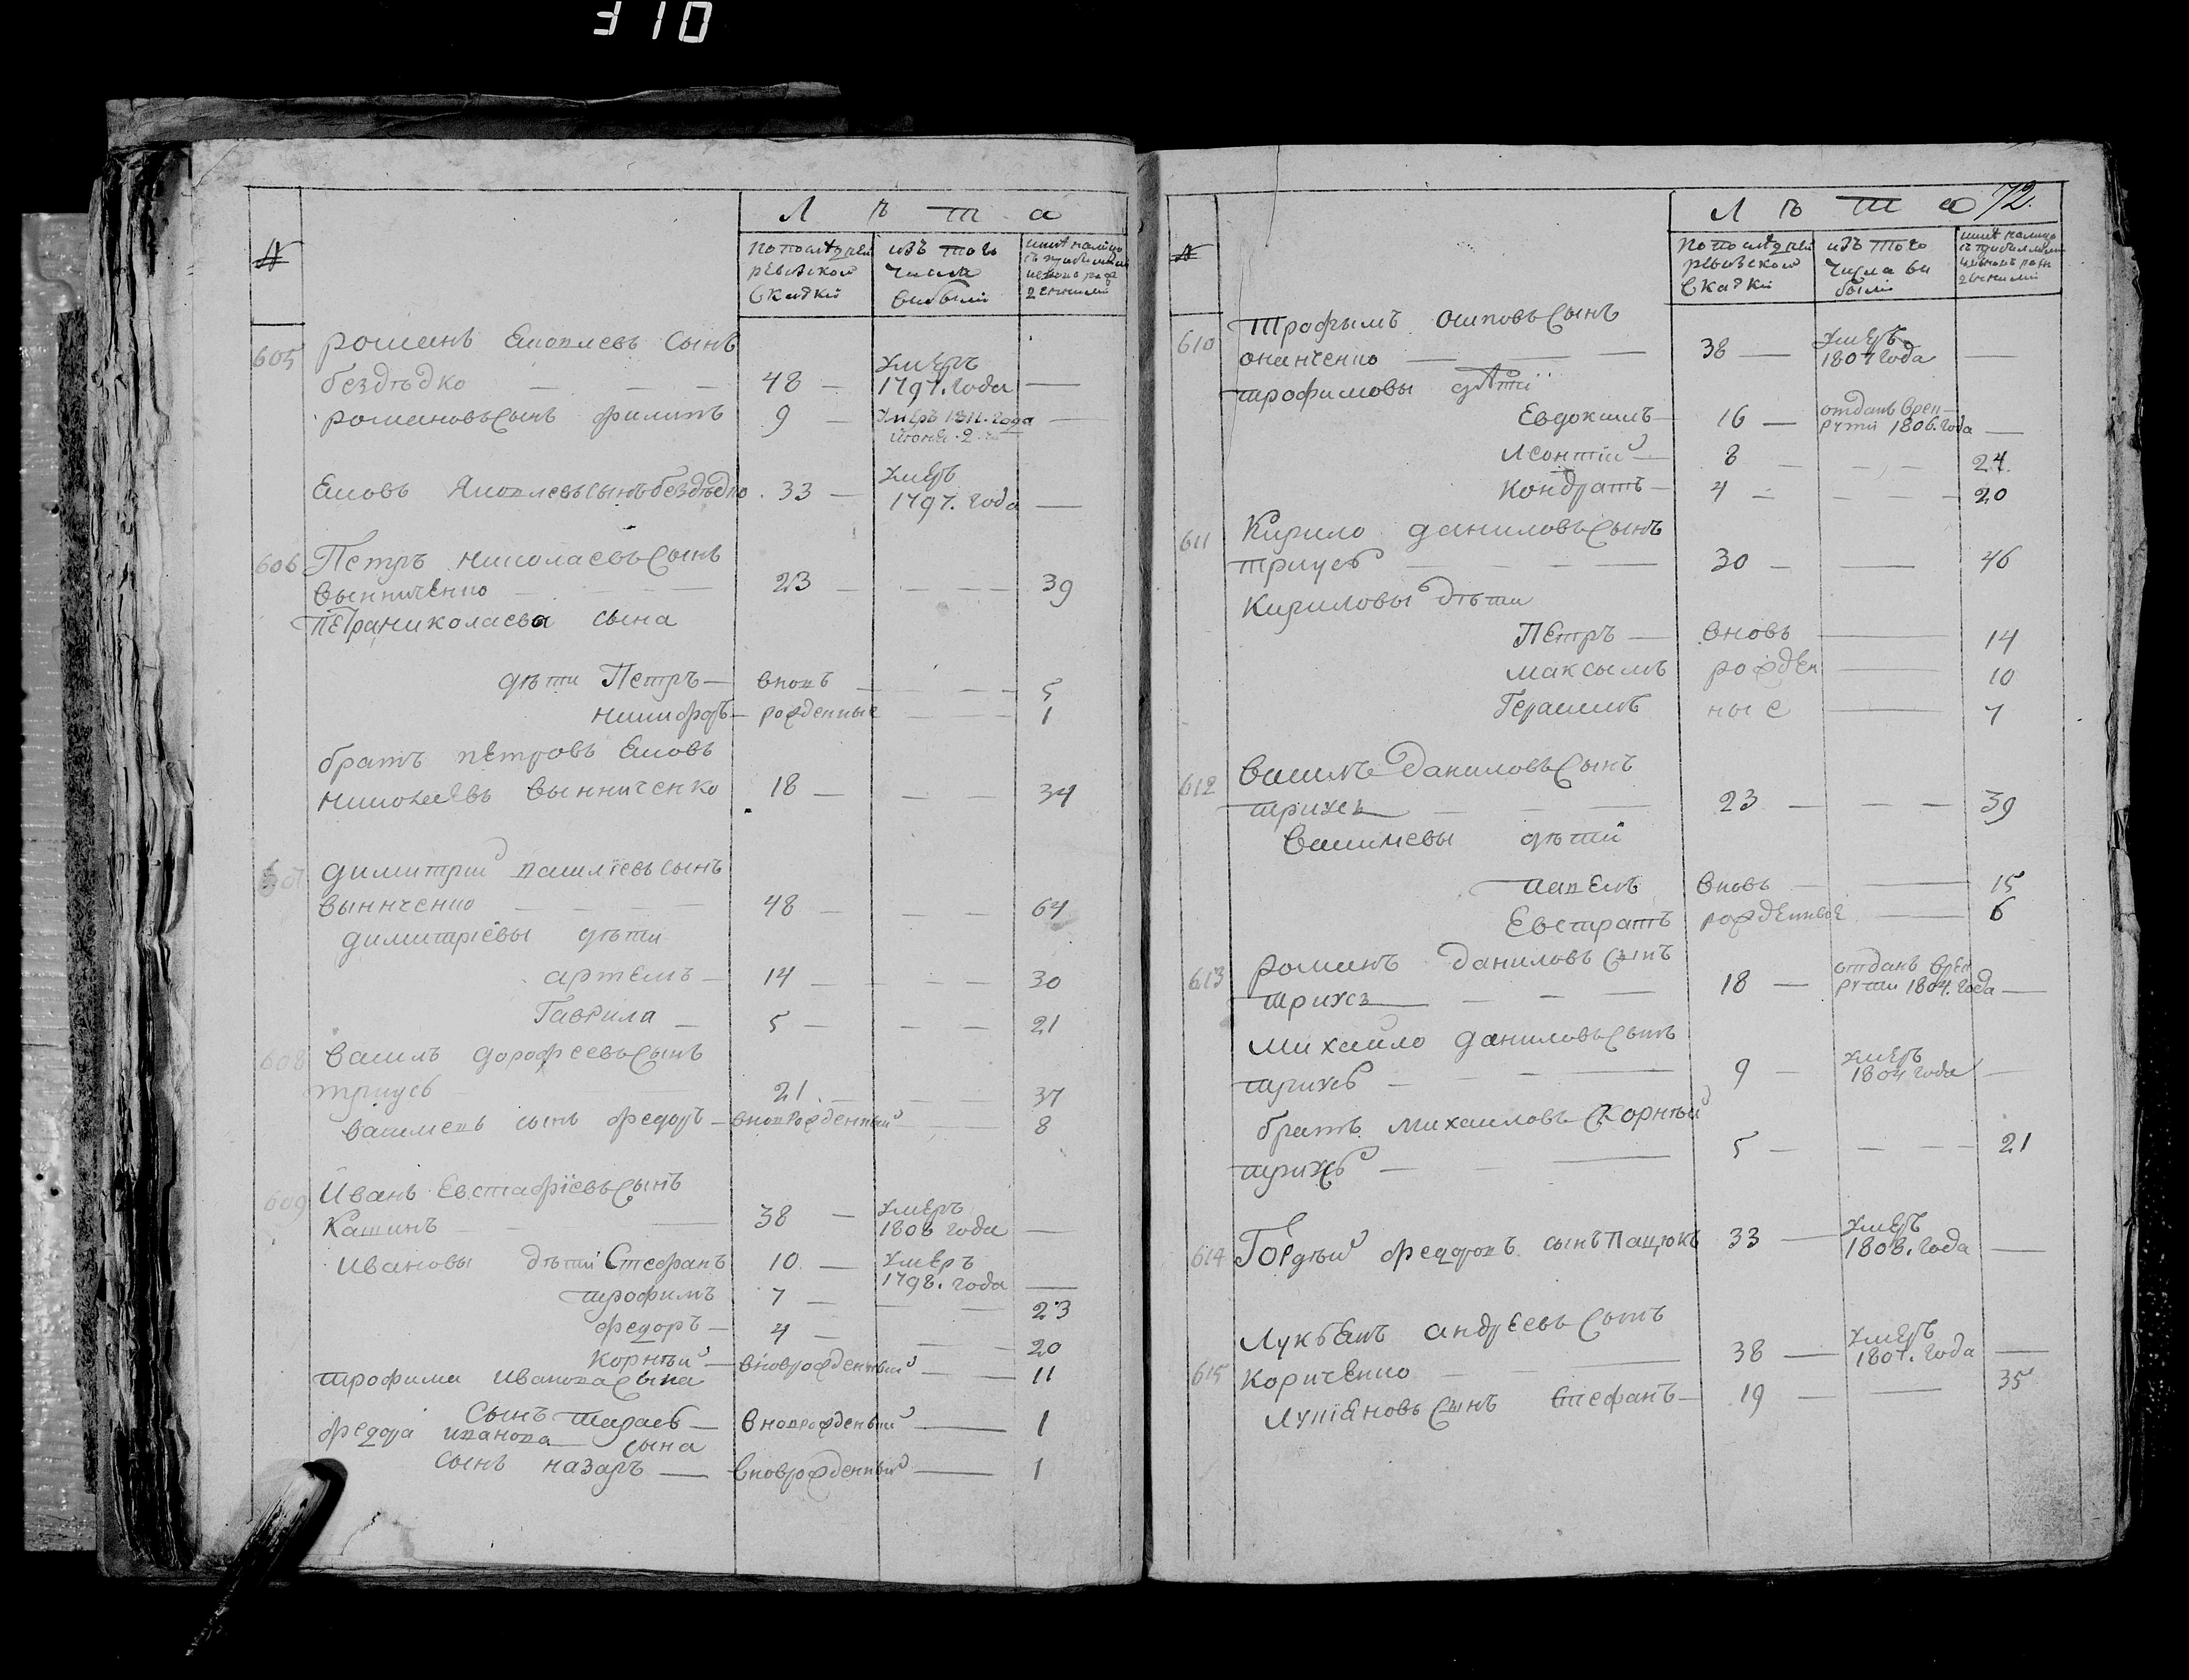 310
Л ѣ т а
№
по последней
ревизской
скаски
изъ того
числа
выбыли
ныне налицо
605 романъ Яковлевъ сынъ
бездѣдко — — — 48 — умеръ
1797. года —
романовъ сынъ филипъ 9 — умеръ 1811. года
июня 2 —
Яковъ Яковлевъ сынъ бездѣдко 33 — умеръ
1797. года —
606 Петръ николаевъ сынъ
вынниченко — 23 — — — — 39
Петра николаева сына
дѣти Петръ — вновь — — — 5
никифоръ — рожденные — 1
братъ петровъ Яковъ
николаевъ вынниченко 18 — — — 34
607 димитрий василіевъ сынъ
вынниченко — — — — 48 — — — 64
димитріевы дѣти
артемъ — 14 — — — — 30
Гаврила — 5 — — — 21
608 василь дорофеевъ сынъ
тризубъ 21. — — — 37
василевъ сынъ федоръ — вноврожденный — 8
609 Иванъ Евстафіевъ сынъ
Кашинъ — 38 — умеръ
1806 года —
ивановы дѣти Стефанъ 10. — умеръ
1798. года —
трофимъ 7 — — — 23
федоръ — 4 — — — 20
Корнѣй — вноврожденный — — 11
трофима иванова сына
сынъ тарасъ — вноврожденный — 1
федора иванова сына
сынъ назаръ — вноврожденный — 1
72.
Л ѣ т а
№
по последней
ревизской
скаски
изъ того
числа вы
были
ныне налицо
610 трофымъ осиповъ сынъ
онанченко — — 38 — умеръ
1807 года
трофимовы дѣти
Евдокимъ — 16 — отданъ врек
руты 1806. года —
Леонтій — 8 — — — 24.
Кондратъ — 4 — — — — 20
611 Кирило даниловъ сынъ
— — — — 30 — — 46
Кириловы дѣти
Петръ — вновь — 14
максымъ рожден — 10
Герасимъ ные — 7
612 василь даниловъ сынъ
— — — 23 — — — 39
василевы дѣти
павелъ вновь — — 15
Евстратъ рожденные — 6
613 романъ даниловъ сынъ
— — — 18 — отданъ врек
руты 1804. года —
михайло даниловъ сынъ
— — — 9 — умеръ
1804 года —
братъ михайловъ Корнѣй
— — — 5 — — — 21
614 Гордѣй федоровъ сынъ Пацюкъ 33 — умеръ
1808. года —
Лукьянъ андреевъ сынъ
615 Корченко — 38 — умеръ
1807. года —
Лукіяновъ сынъ Стефанъ — 19 — — 35